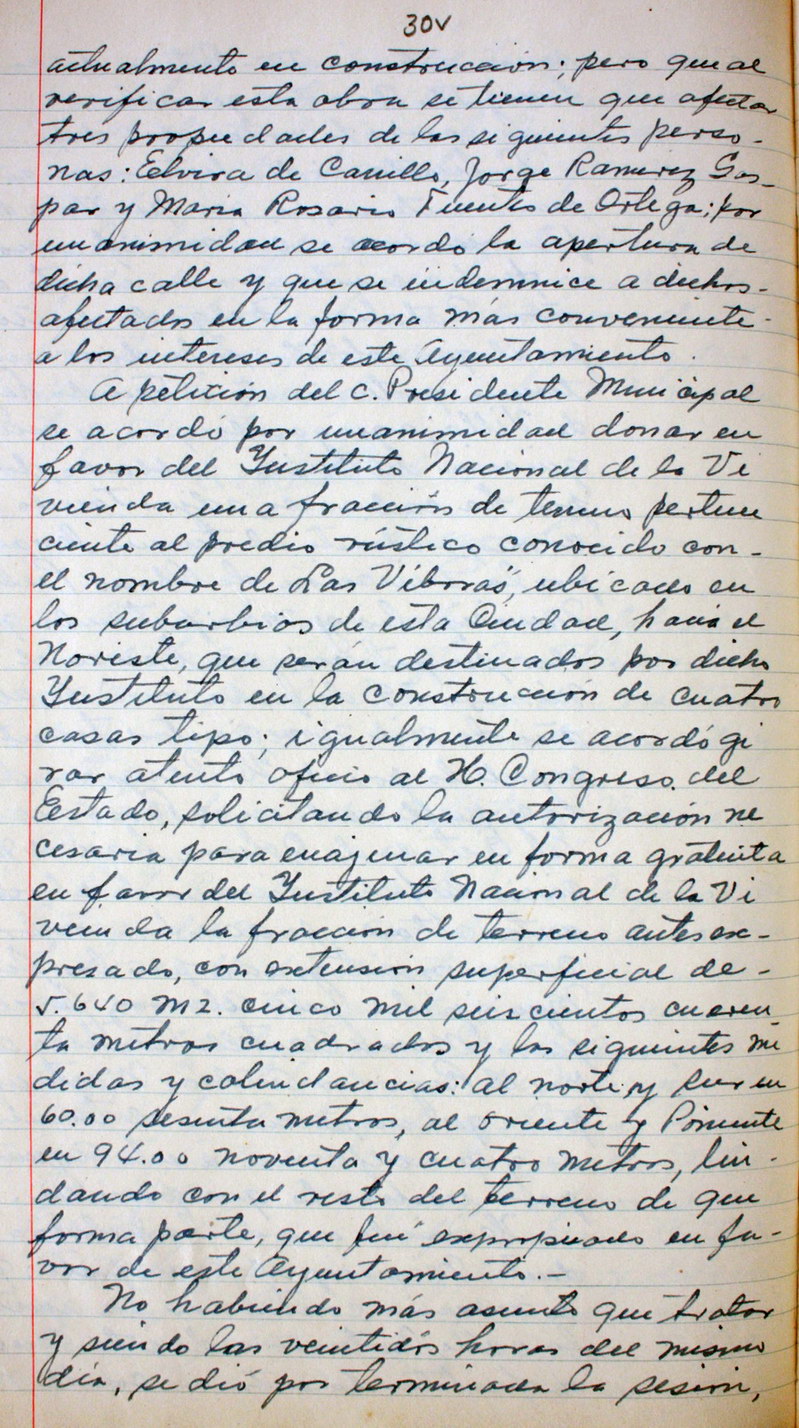 30v
actualmente en construccion; pero que al
verificar esta obra se tienen que afectar
tres propiedades de las siguientes perso-
nas: Elvira de Carrillo, Jorge Ramirez Gas-
par y Maria Rosario Fuentes de Ortega; por
unanimidad se acordó la apertura de
dicha calle y que se indemnice a dichos-
afectados en la forma más conveniente-
a los intereses de este Ayuntamiento.
A petición del C. Presidente Municipal
se acordó por unanimidad donar en
favor del Instituto Nacional de la Vi
vienda una fracción de terreno pertene
ciente al predio rústico conocido con-
el nombre de Las Víboras, ubicado en
los suburbios de esta Ciudad, hacia el
Noreste, que serán destinados por dicho
Instituto en la construcción de cuatro
casas tipo; igualmente se acordó gi
rar atento oficio al H. Congreso del
Estado, solicitando la autorización ne
cesaria para enajenar en forma gratuita
en favor del Instituto Nacional de la Vi
vienda la fracción de terreno antes ex-
presado, con extensión superficial de-
5.640 m2. cinco mil seiscientos cuaren
ta metros cuadrados y las siguientes me
didas y colindancias: al norte y sur en
60.00 sesenta metros, al oriente y Poniente
en 94.00 noventa y cuatro metros, lin-
dando con el resto del terreno de que
forma parte, que fué expropiado en fa-
vor de este Ayuntamiento.-
No habiendo más asunto que tratar
y siendo las veintidós horas del mismo
día, se dió por terminada la sesión,